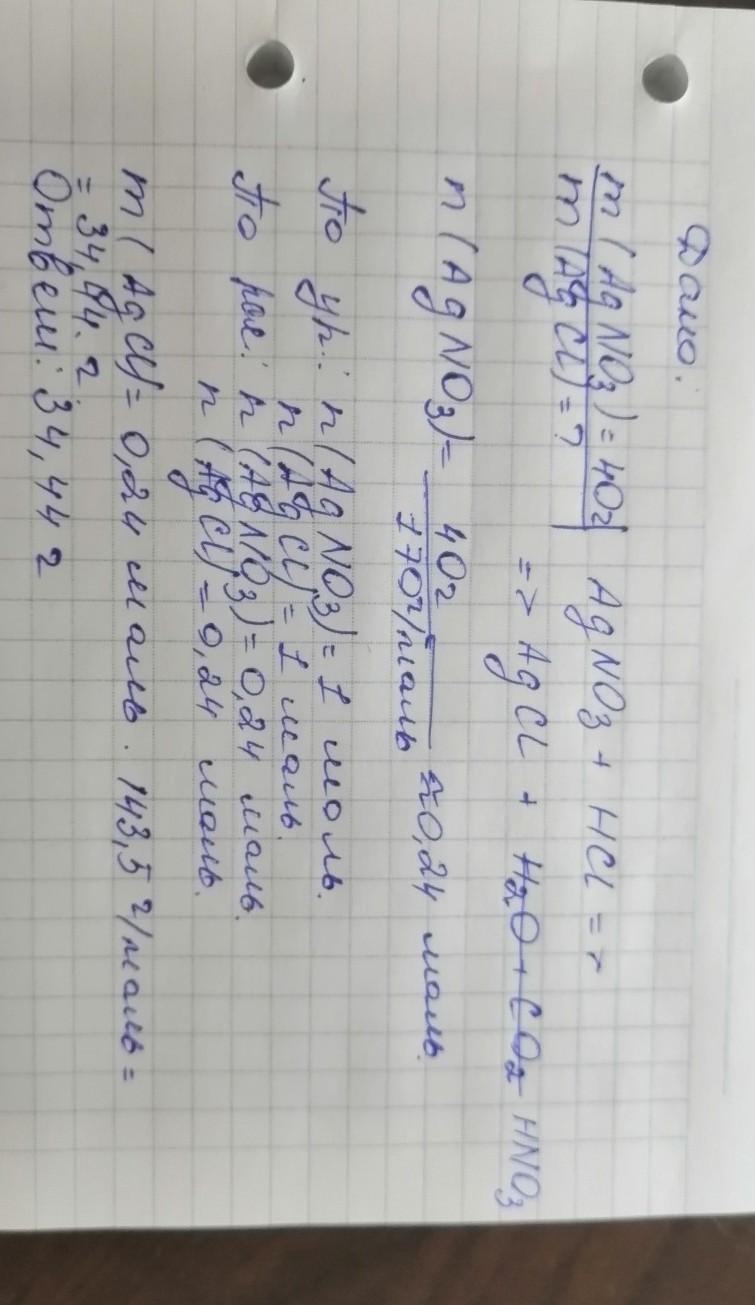 Дано:
m(AgNO3)=40г AgNO3 + HCl =>
m(AgCl)=? => AgCl + H2O + CO2 HNO3
n(AgNO3)= 40г / 170г/моль ≈0,24 моль.
По ур.: n(AgNO3)= 1 моль.
n(AgCl)= 1 моль.
По рас: n(AgNO3)=0,24 моль.
n(AgCl)=0,24 моль.
m(AgCl)=0,24 моль · 143,5г/моль=
= 34,44г.
Ответ: 34,44г